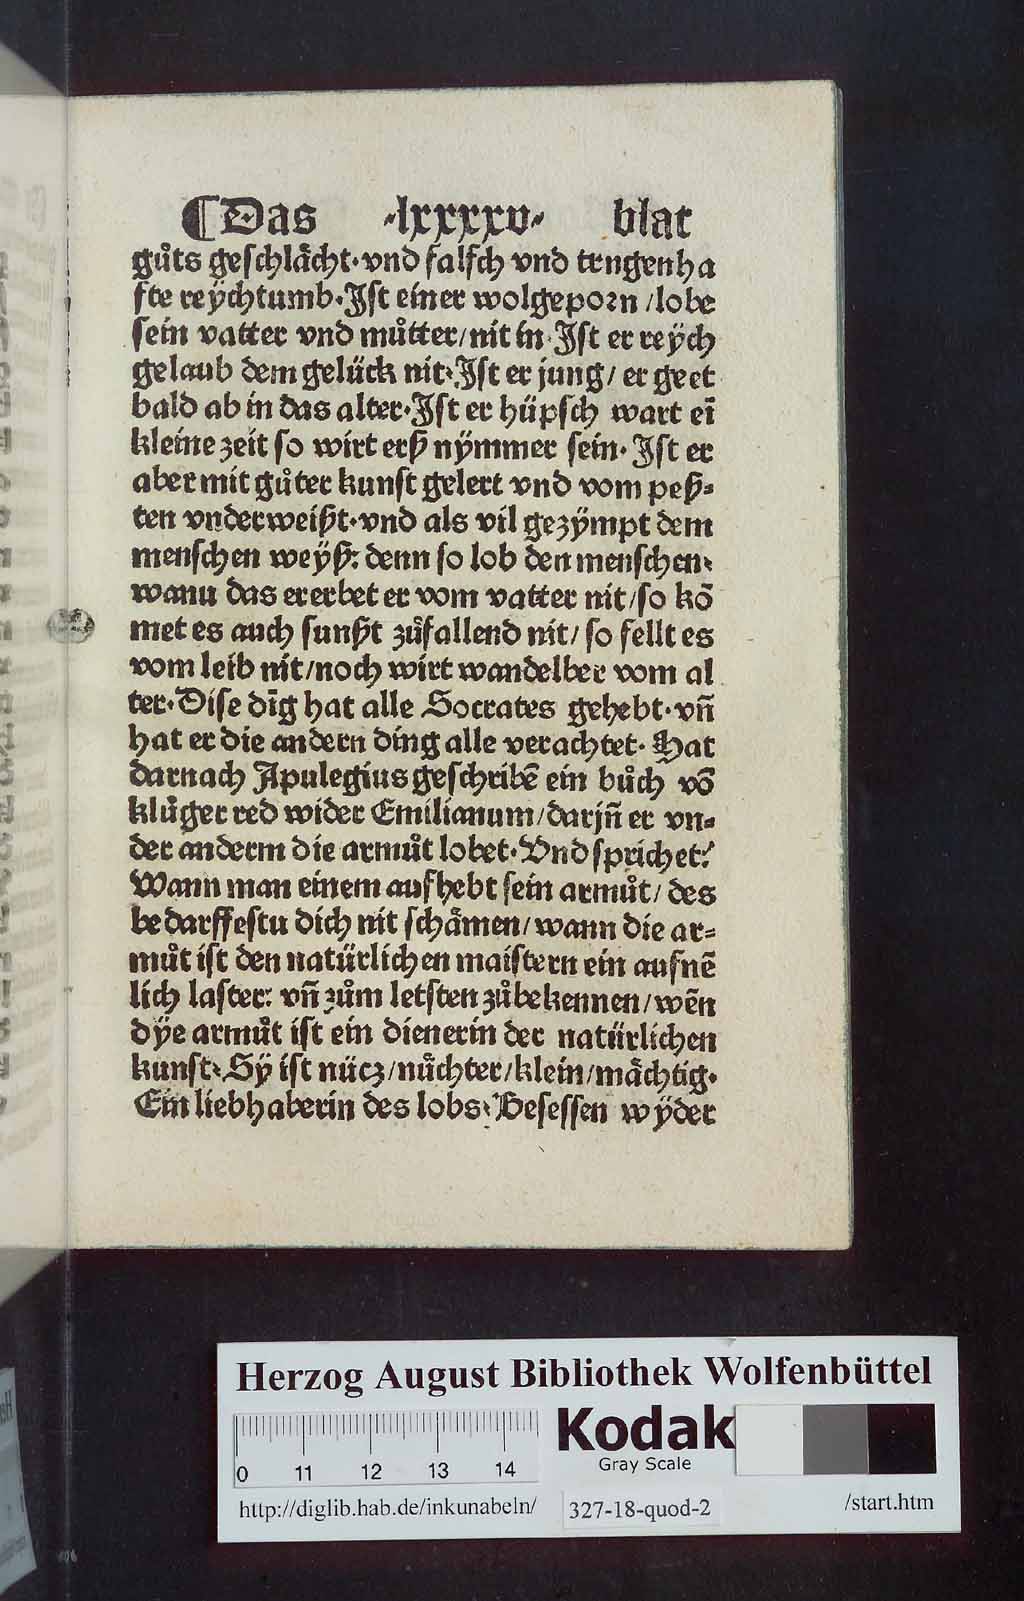 ¶Das ·lxxxxv· blat
gůts geschlåcht·vnd falsch vnd trngenha
fte reÿchtumb·Jst einer wolgeporn/lobe
sein vatter vnd můtter/nit in·Jst er reÿch
gelaub dem gelück nit·Jst er jung/er geet
bald ab in das alter·Jst er hüpsch wart eī
kleine zeit so wirt erß nÿmmer sein·Jst er
aber mit gůter kunst gelert vnd vom peß⸗
ten vnderweißt·vnd als vil gezÿmpt dem
menschen weÿß: denn so lob den menschen·
wann das ererbet er vom vatter nit/so kō
met es auch sunßt zůfallend nit/so fellt es
vom leib nit/noch wirt wandelber vom al
ter·Dise dīg hat alle Socrates gehebt·vn̄
hat er die andern ding alle verachtet·Hat
darnach Apulegius geschribē ein bůch vō
klůger red wider Emilianum/darjn̄ er vn⸗
der anderm die armůt lobet·Vnd sprichet:
Wann man einem aufhebt sein armůt/des
bedarffestu dich nit schåmen/wann die ar⸗
můt ist den natürlichen maistern ein aufnē
lich laster: vn̄ zům letsten zůbekennen/wēn
dÿe armůt ist ein dienerin der natürlichen
kunst·Sÿ ist nücz/nůchter/klein/måchtig·
Ein liebhaberin des lobs·Besessen wÿder
Herzog August Bibliothek Wolfenbüttel
Kodak
Gray Scale
0 11 12 13 14
http://diglib.hab.de/inkunabeln/ 327-18-quod-2 /start.htm